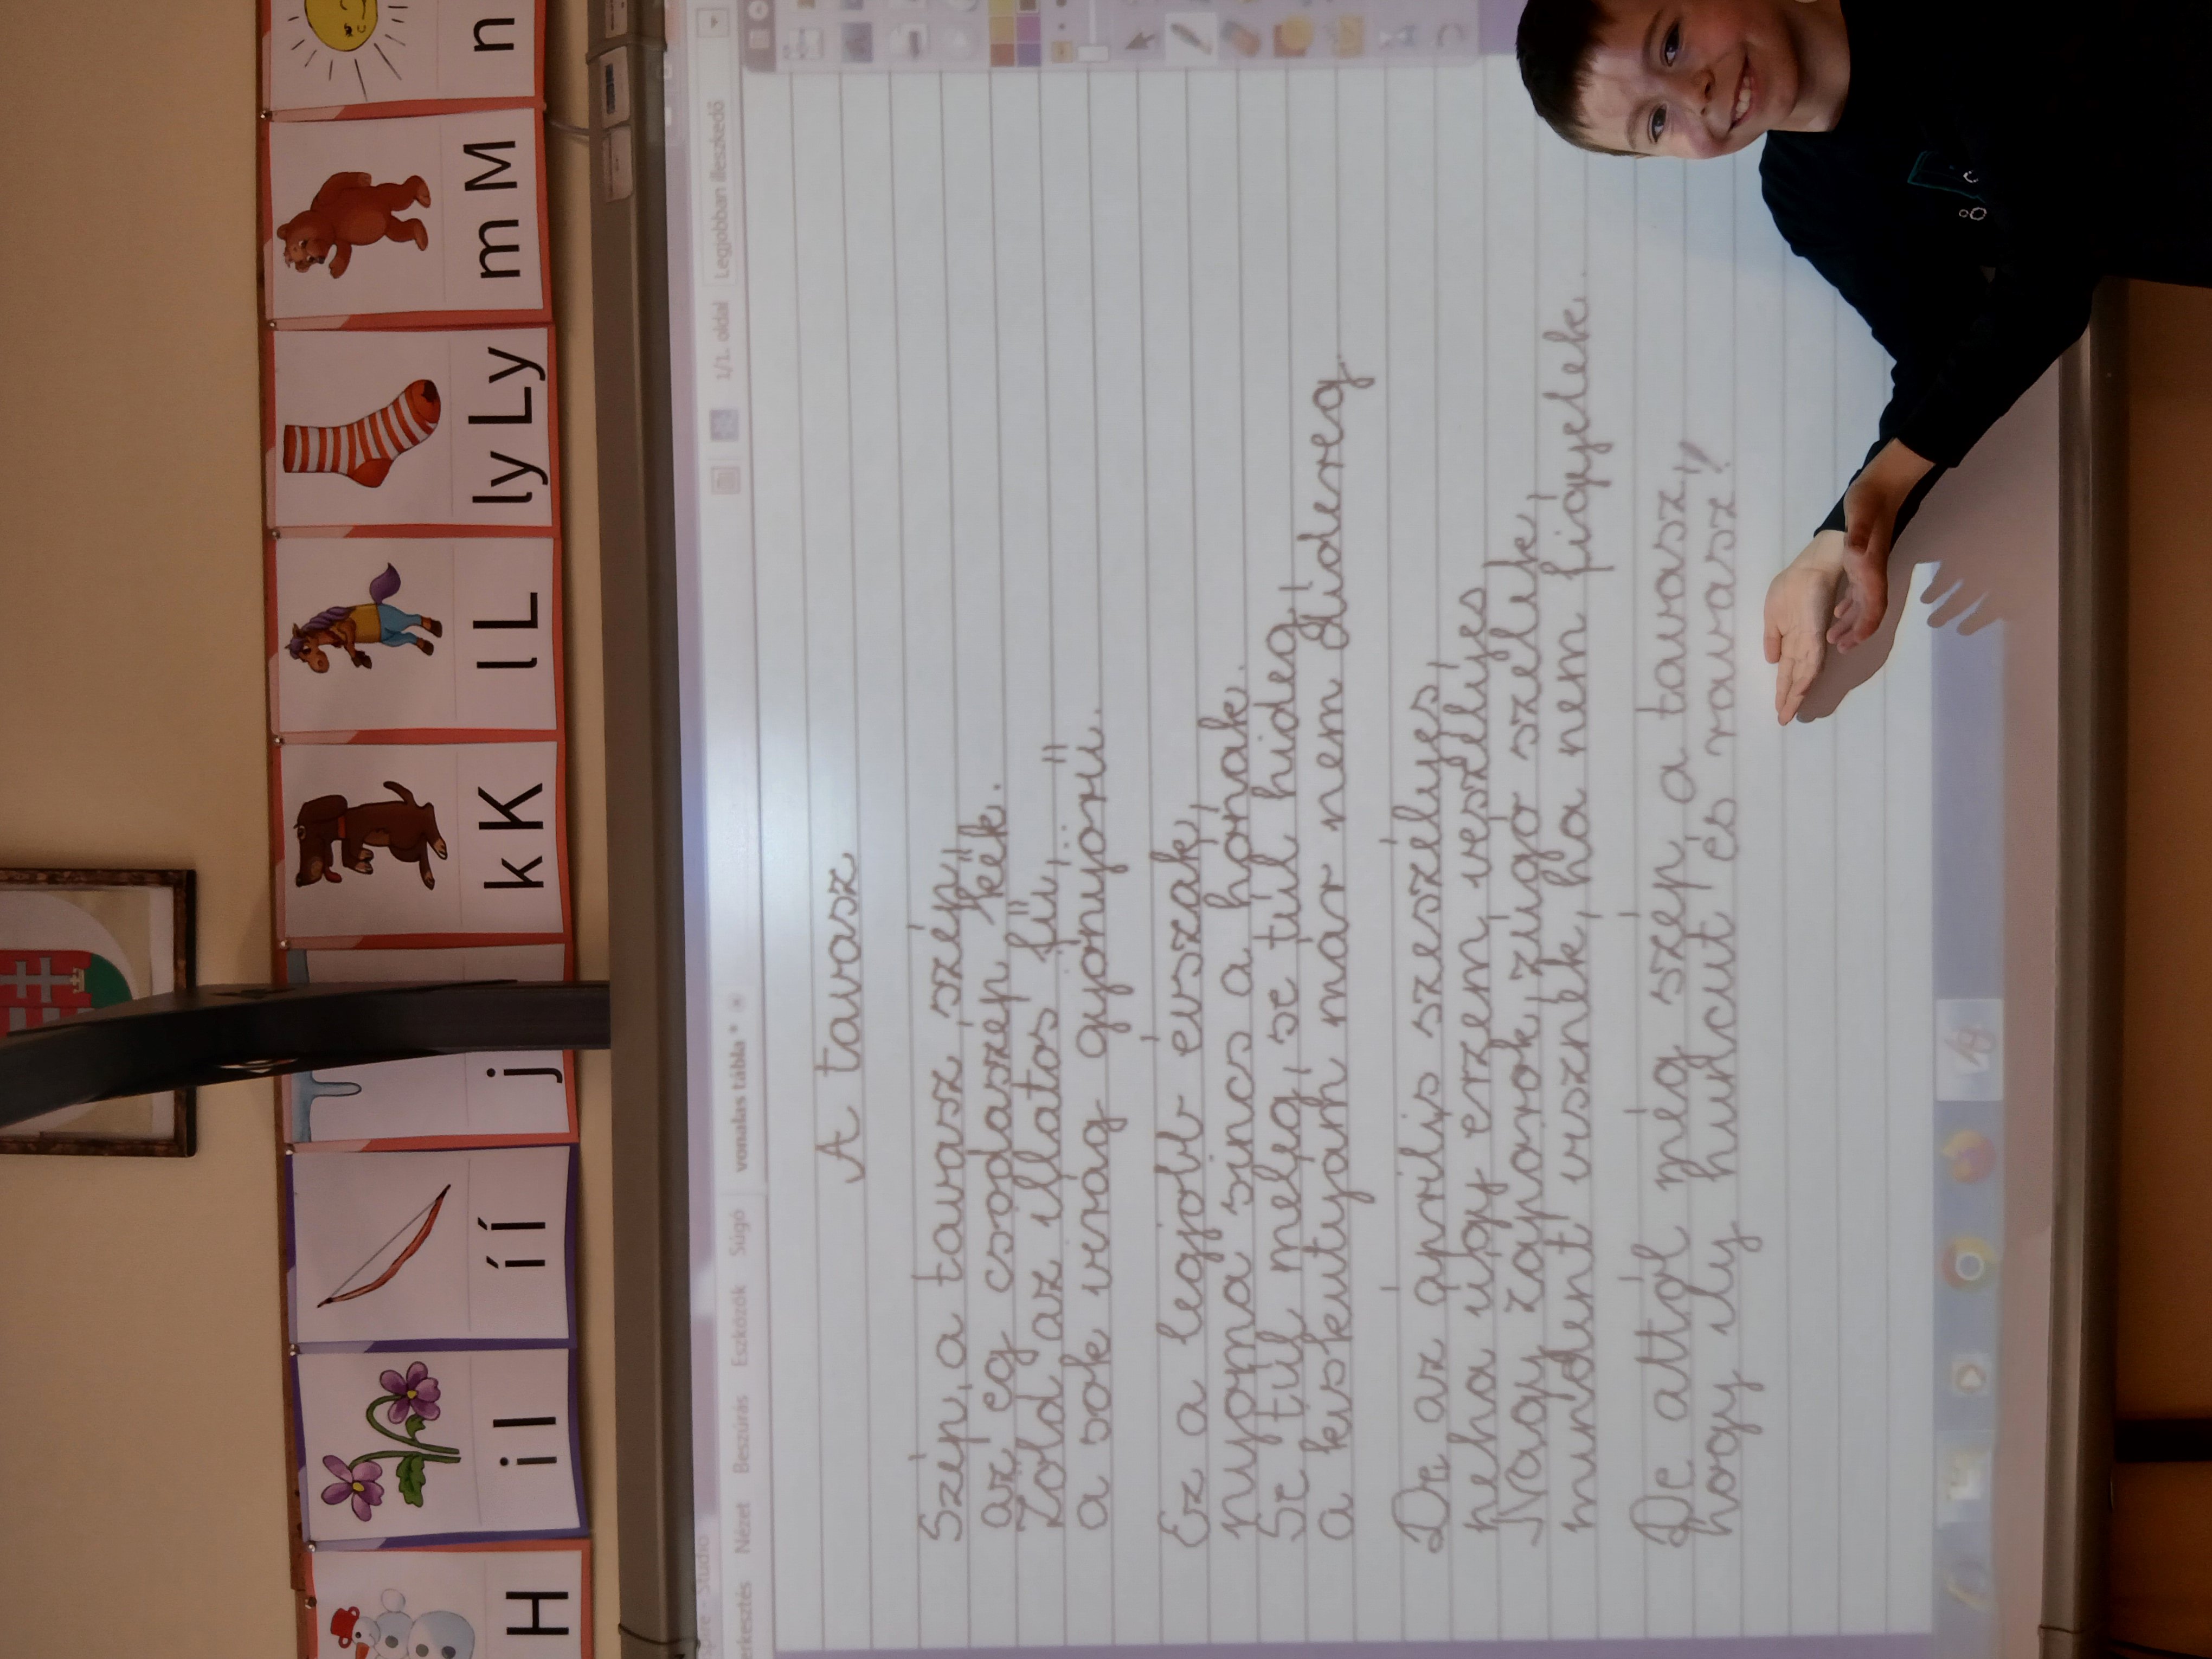 H
i I
í Í
j
k K
l L
ly Ly
m M
n
Nézet Beszúrás Eszközök Súgó vonalas tábla* 1/1. oldal Legjobban illeszkedő
A tavasz
Szép, a tavasz szép,
az ég csodaszép kék.
Zöld az illatos fű,
a sok virág gyönyörű.
Ez a legjobb évszak,
nyoma sincs a hónak.
Se túl meleg, se túl hideg,
a kiskutyám már nem didereg.
De az április szeszélyes,
néha úgy érzem, veszélyes.
Nagy záporok, zúgó szelek,
mindent visznek, ha nem figyelek.
De attól még szép a tavasz,
hogy ily huncut és ravasz!